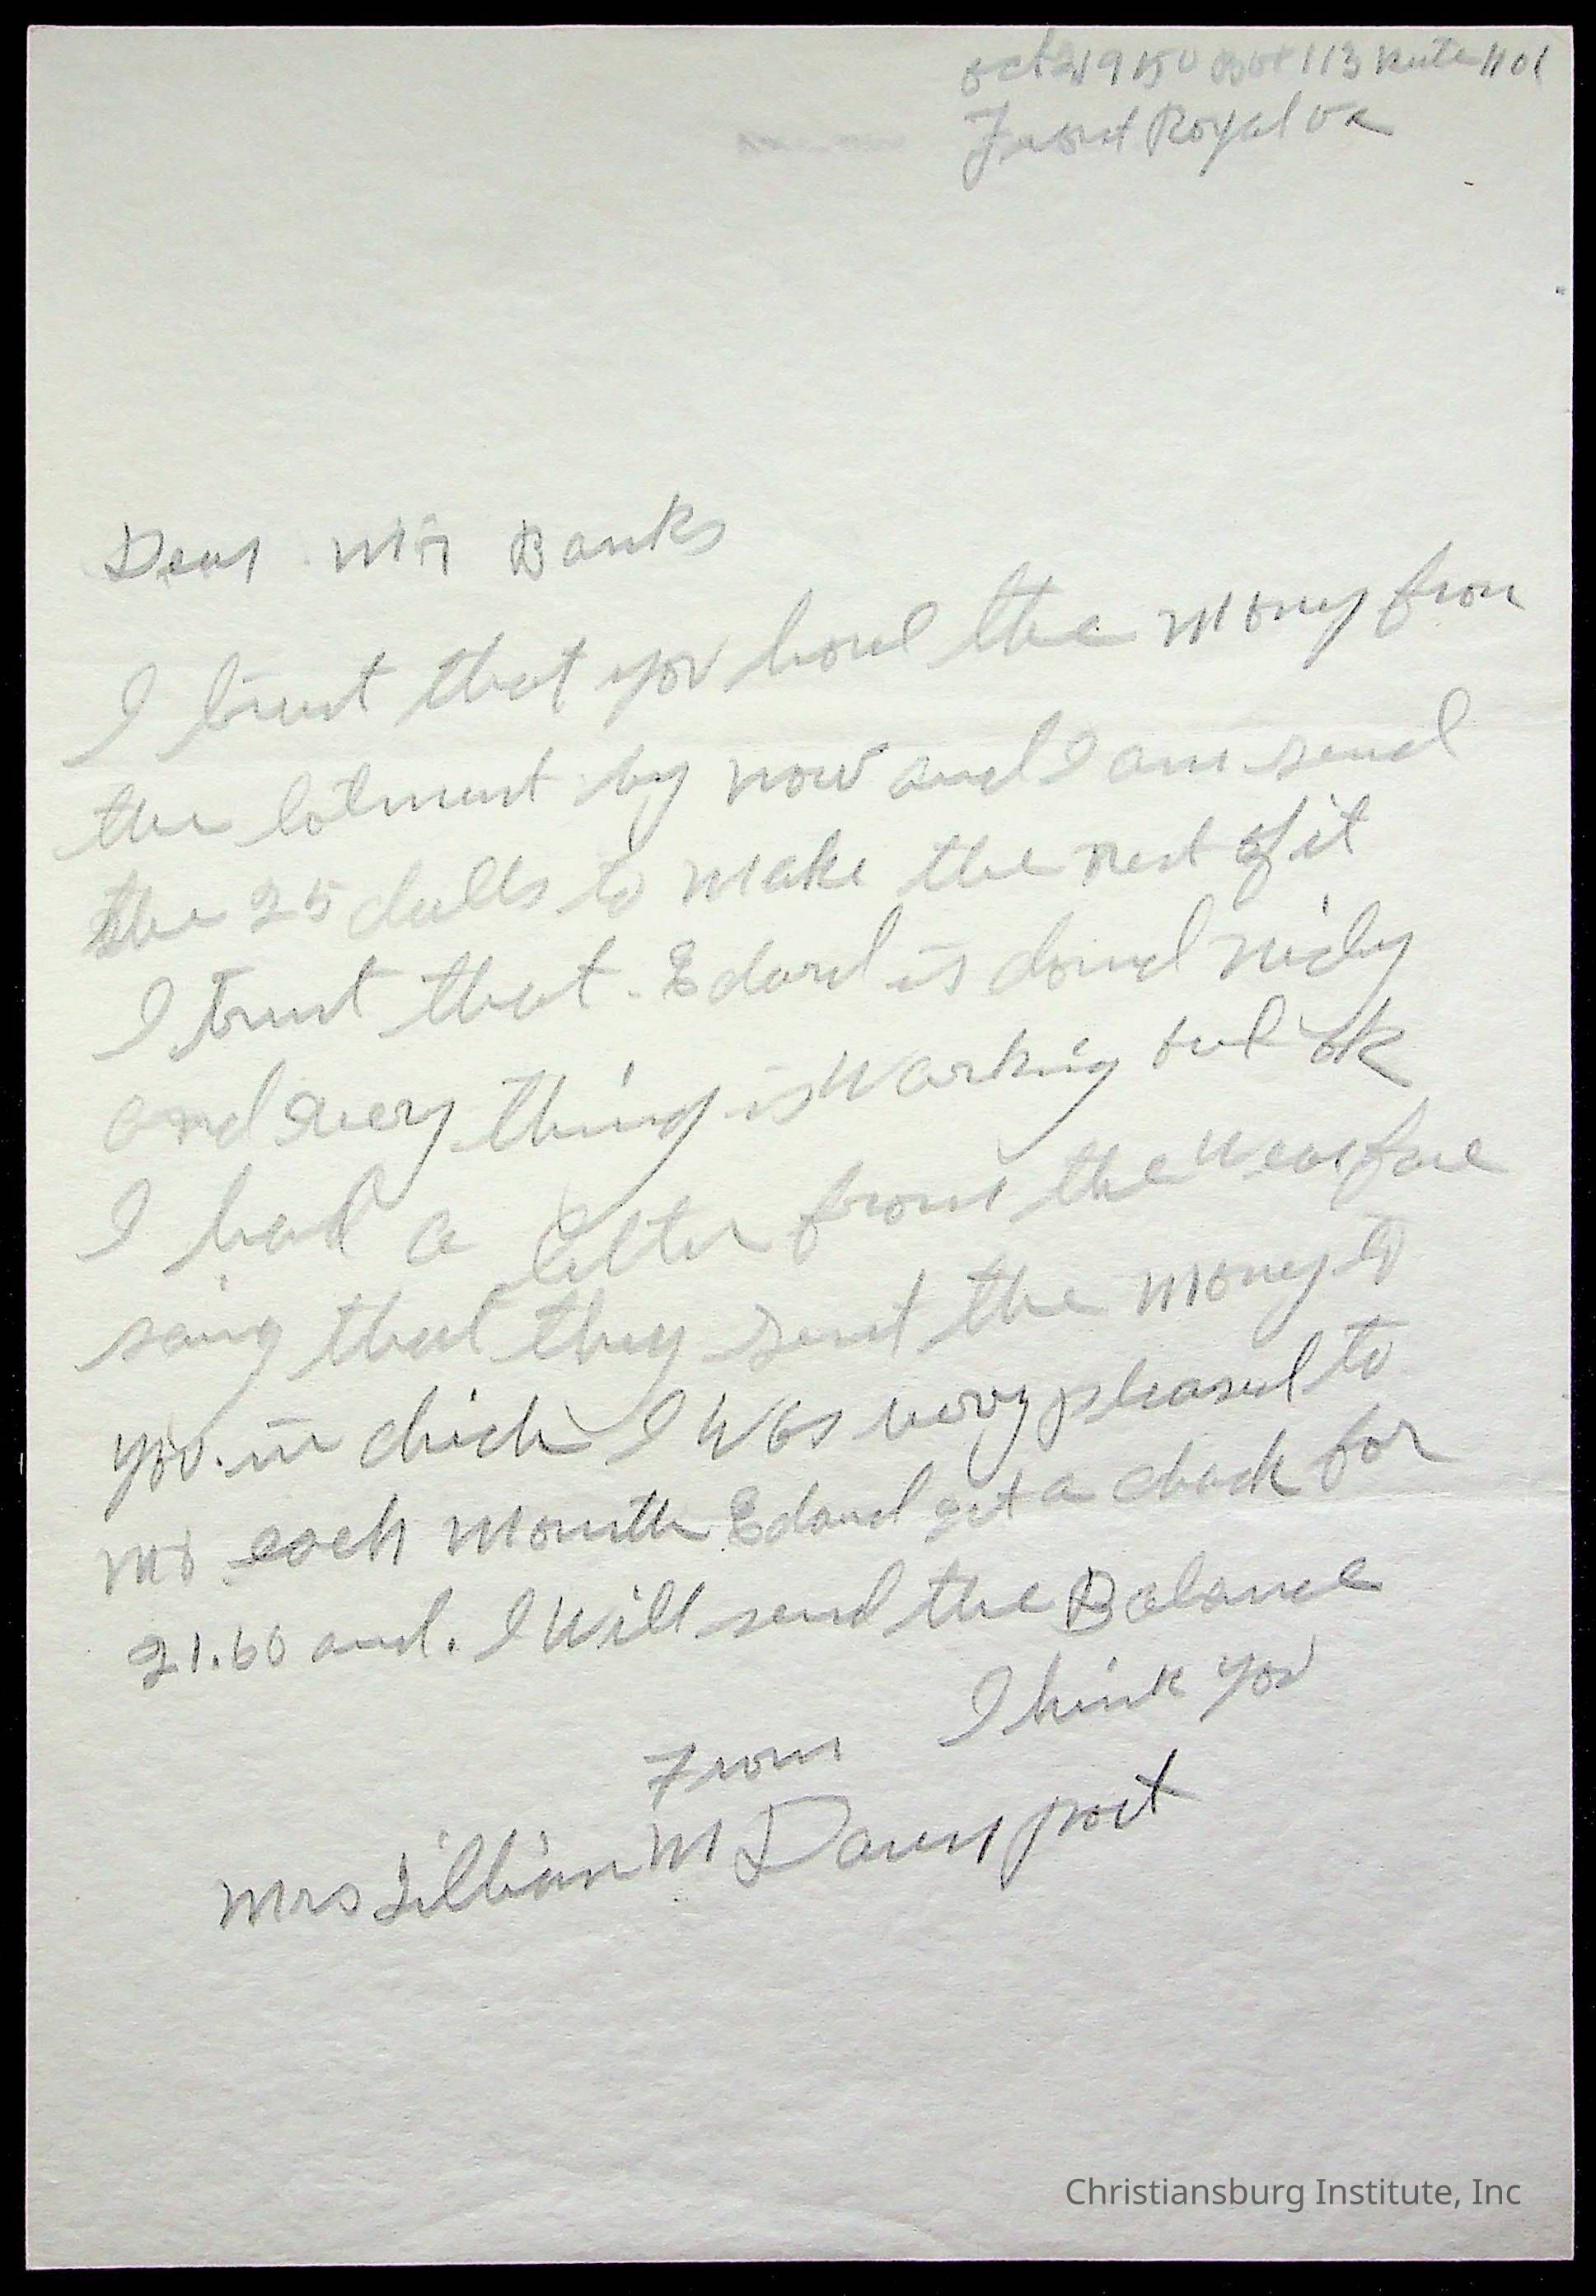 Oct 2 1950 Box 113 Rute no 1
Front Royal Va
Dear Mr Banks
I trust that you have the mony fron
the lotment by now and I am send
the 25 dolls to make the rest of it
I trust that Edard is doind nicly
and every thing is Warking out ok
I had a letter from the Wearfare
saing that they sent the mony to
you. in chich I Was very pleased to
no each month Edard get a chack for
21.60 and. I Will send the Balance
I hink you
From
Mrs Lillian M Davenport
Christiansburg Institute, Inc